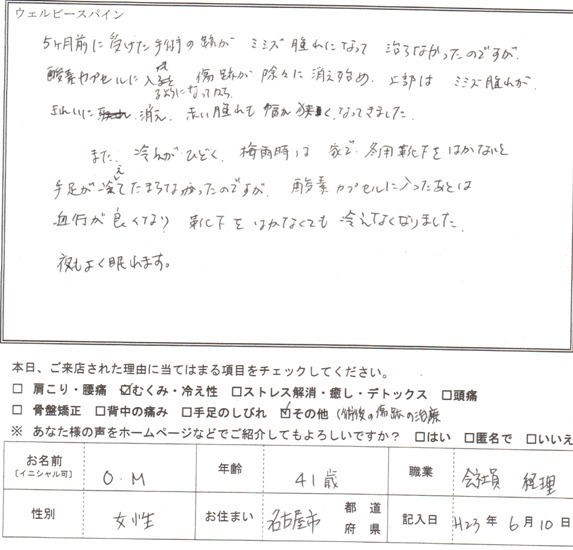 ウェルビースパイン
5ヶ月前に受けた手術の跡が ミミズ腫れになって 治らなかったのですが、
酸素カプセルに入るようになってから 傷跡が 除々に消え始め、上部は ミミズ腫れが、
きれいに 消え、赤い腫れも 幅が狭くなってきました。
また、冷えがひどく、梅雨時は 家で 冬用靴下をはかないと
手足が冷えてたまらなかったのですが、酸素カプセルに入ったあとは
血行が良くなり 靴下をはかなくても 冷えなくなりました。
夜もよく眠れます。
本日、ご来店された理由に当てはまる項目をチェックしてください。
□ 肩こり・腰痛 ☑むくみ・冷え性 □ストレス解消・癒し・デトックス □頭痛
□ 骨盤矯正 □背中の痛み □手足のしびれ ☑その他（術後の傷跡の治療
※ あなた様の声をホームページなどでご紹介してもよろしいですか? □はい □匿名で □いいえ
お名前 [イニシャル可] O.M 年齢 41歳 職業 会社員 経理
性別 女性 お住まい 名古屋市 都道府県 記入日 H23年 6月10日